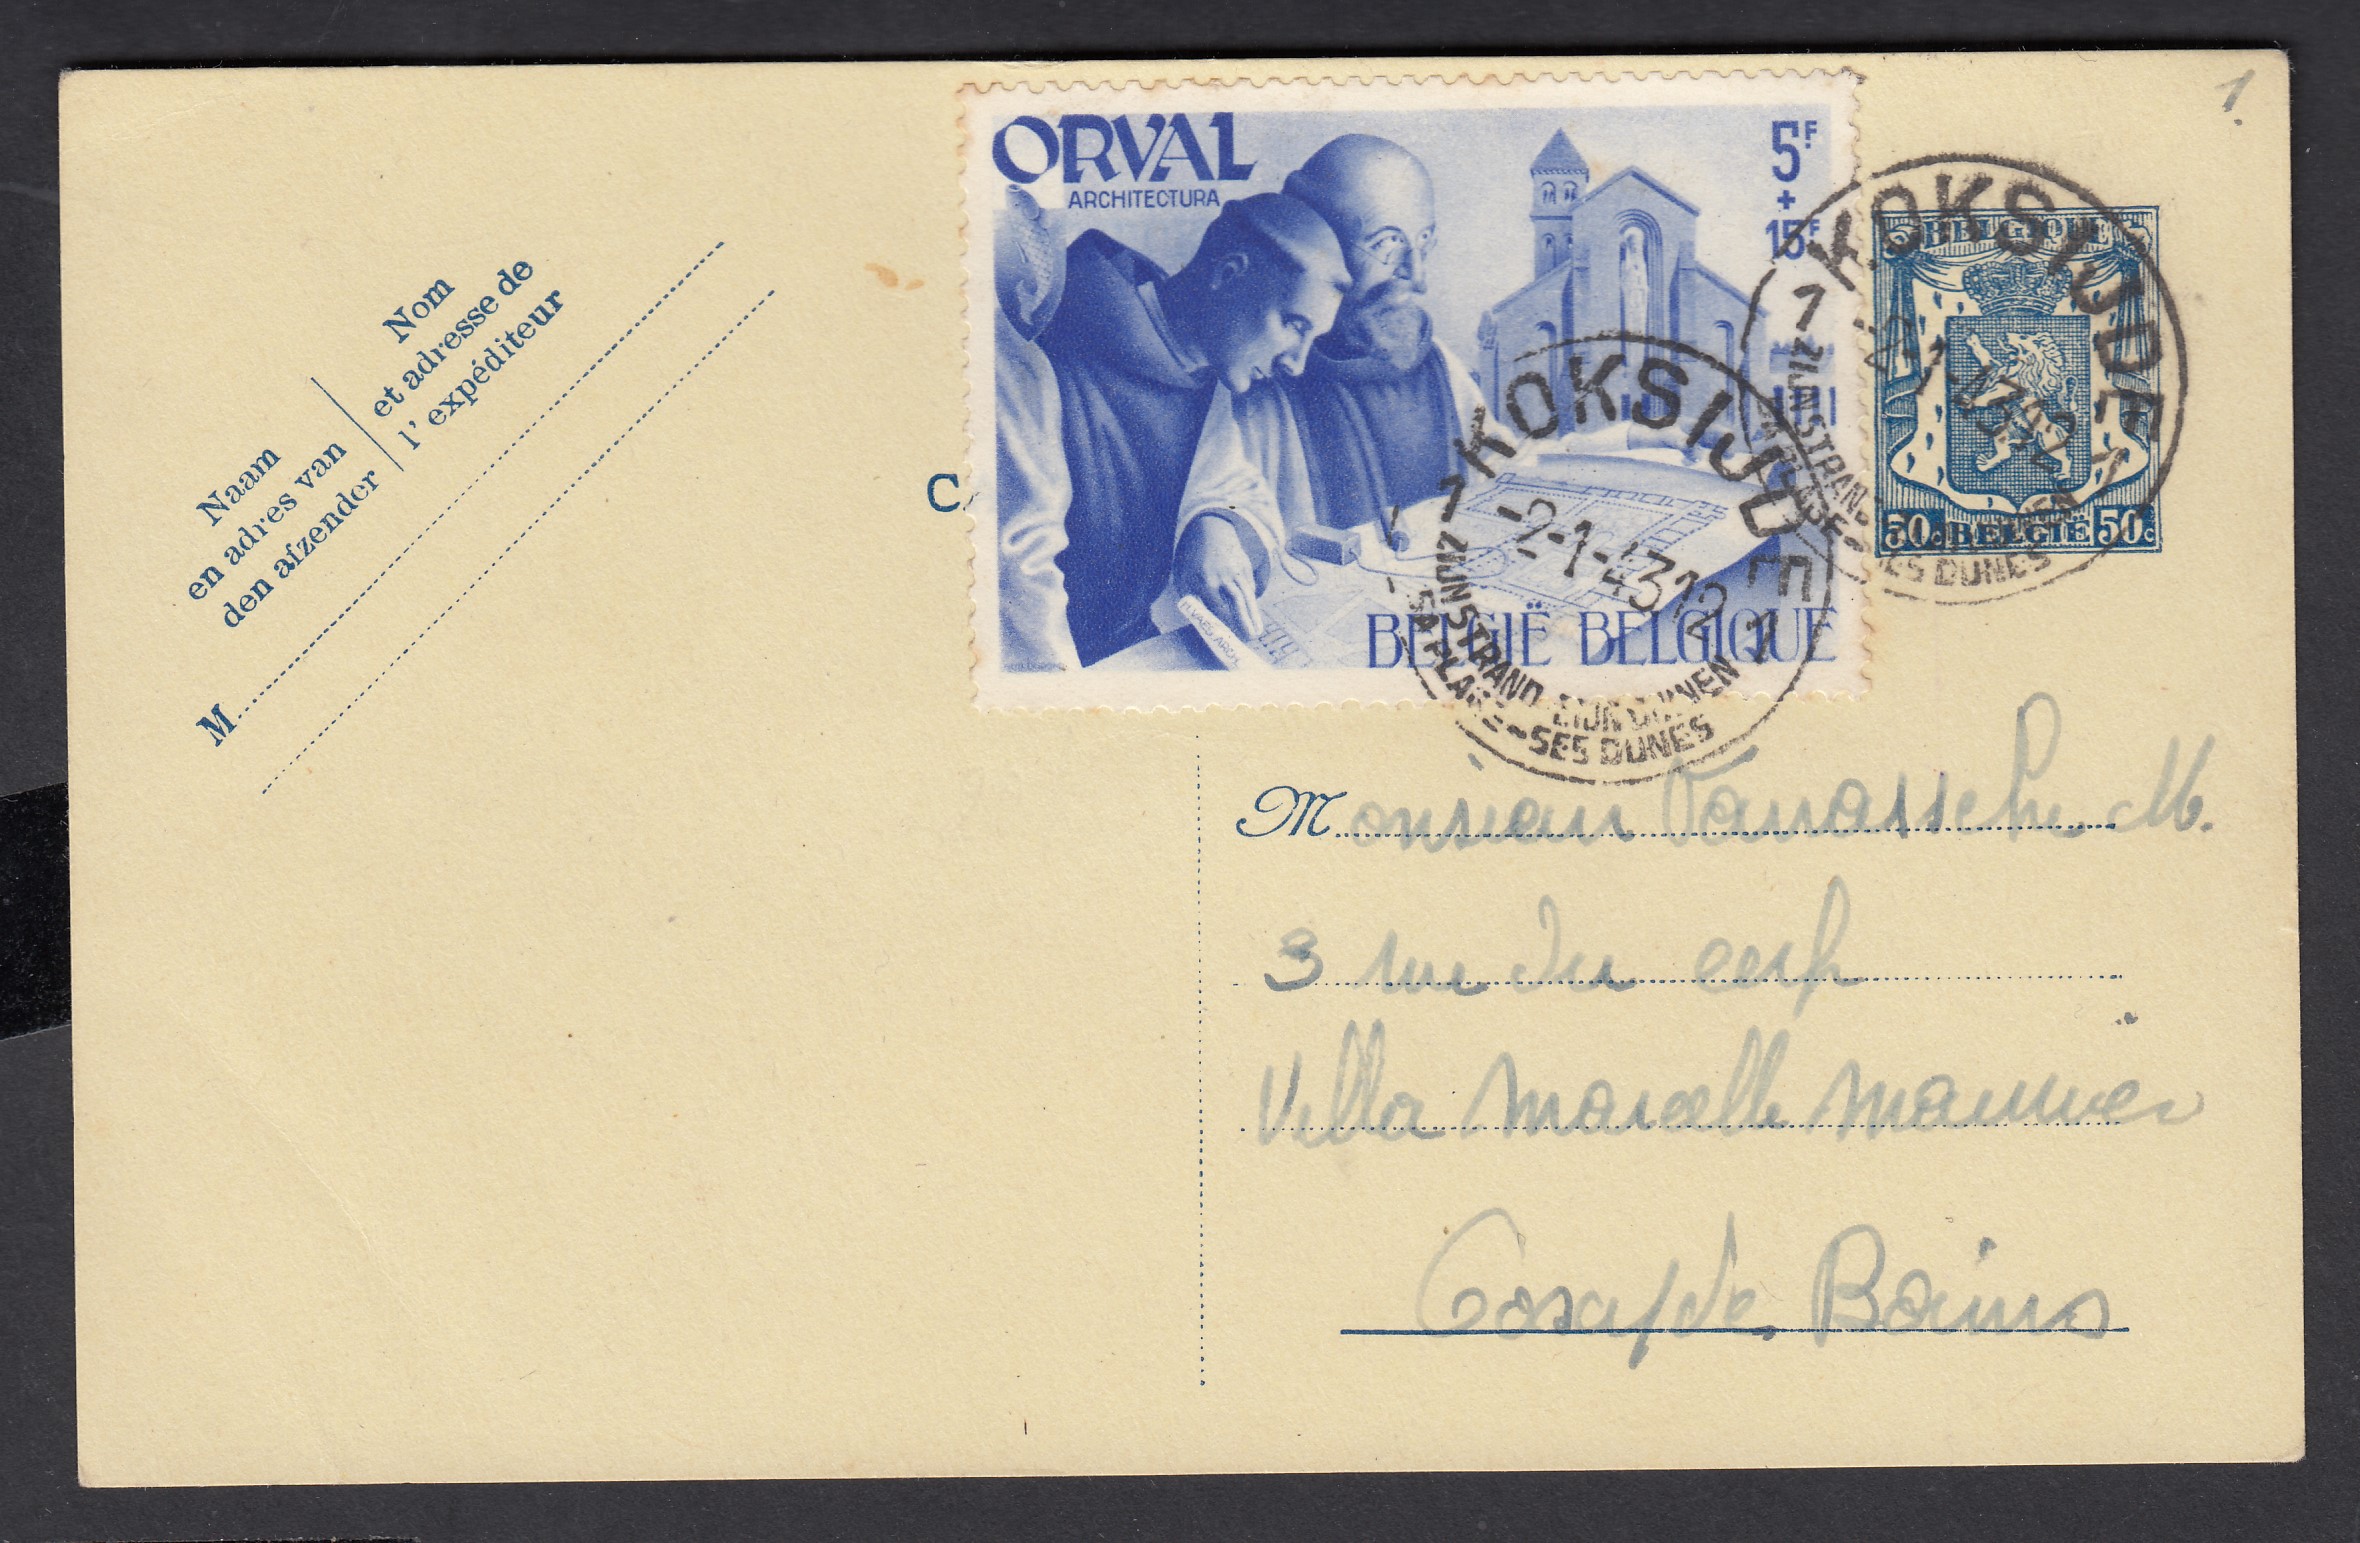 1.
ORVAL
ARCHITECTURA
5F
+
15F
H. VAES ARCH.
BELGIË BELGIQUE
BELGIQUE
50c BELGIE 50c
KOKSIJDE
1 -2-1-43 12 1
ZIJN STRAND ZIJN DUINEN
SA PLAGE-SES DUNES
KOKSIJDE
1 -2-1-43 12 1
ZIJN STRAND ZIJN DUINEN
SA PLAGE-SES DUNES
Naam
en adres van
den afzender
Nom
et adresse de
l'expéditeur
M
C
Monsieur Vanassche M.
3 rue du cerf
Villa Marcelle
Coxyde Bains